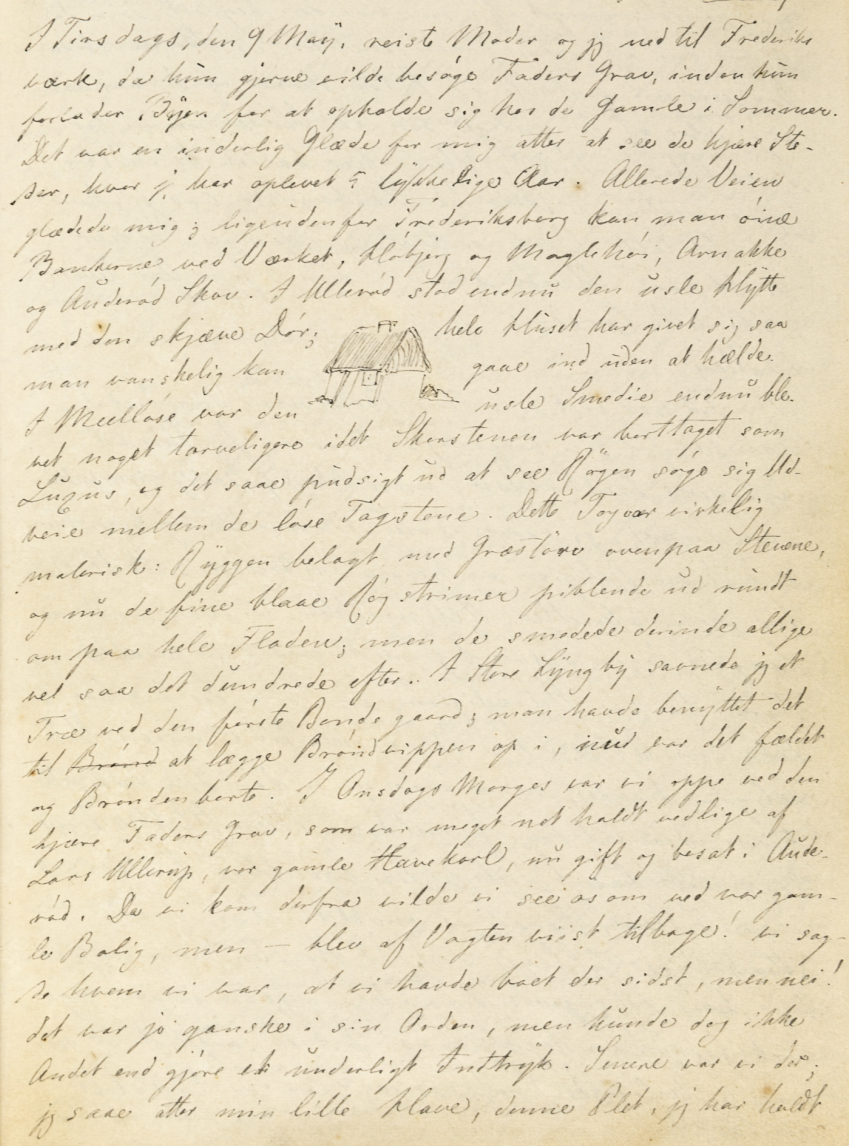 I Tirsdags, den 9 Maÿ. reiste Moder og jeg ned til Frederiks
værk, da hun gjerne vilde besøge Faders Grav, inden hun
forlader Byen for at opholde sig hos de Gamle i Sommer.
Det var en inderlig Glæde for mig atter at see de kjære Ste-
der, hvor jeg har oplevet 5 lykkelige Aar. Allerede Veien
glædede mig; ligeudenfor Frederiksborg kan man øine
Bankerne ved Værket, Kløbjerg og Maglehøi, Arnakke
og Auderød Skov. I Ullerød stod endnu den usle Hytte
med den skjæve Dør; hele Huset har givet sig saa
man vanskelig kan gaae ind uden at hælde.
I Meelløse var den usle Smedie endnu ble-
vet noget tarveligere idet Skorstenen var borttaget som
Luxus, og det saae pudsigt ud at see Røgen søge sig Ud-
veie mellem de løse Tagstene. Dette Tag var virkelig
malerisk: Ryggen belagt med Græstørv ovenpaa Stenene,
og nu de fine blaae Røgstrimer piblende ud rundt
om paa hele Fladen; men de smedede derinde allige
vel saa det dundrede efter. I Store Lyngby savnede jeg et
Træ ved den første Bondegaard; man havde benyttet det
til at lægge Brøndvippen op i, nu var det fældet
og Brønden borte. I Onsdags Morges var vi oppe ved den
kjære Faders Grav, som var meget net holdt vedlige af
Lars Ullerup, vor gamle Havekarl, nu gift og besat i Aude-
rød. Da vi kom derfra vilde vi see os om ved vor gam-
le Bolig, men — blev af Vagten viist tilbage! vi sag-
de hvem vi var, at vi havde boet der sidst, men nei!
det var jo ganske i sin Orden, men kunde dog ikke
Andet end gjøre et underligt Indtryk. Senere var vi der;
jeg saae atter min lille Have, denne Plet, jeg har holdt